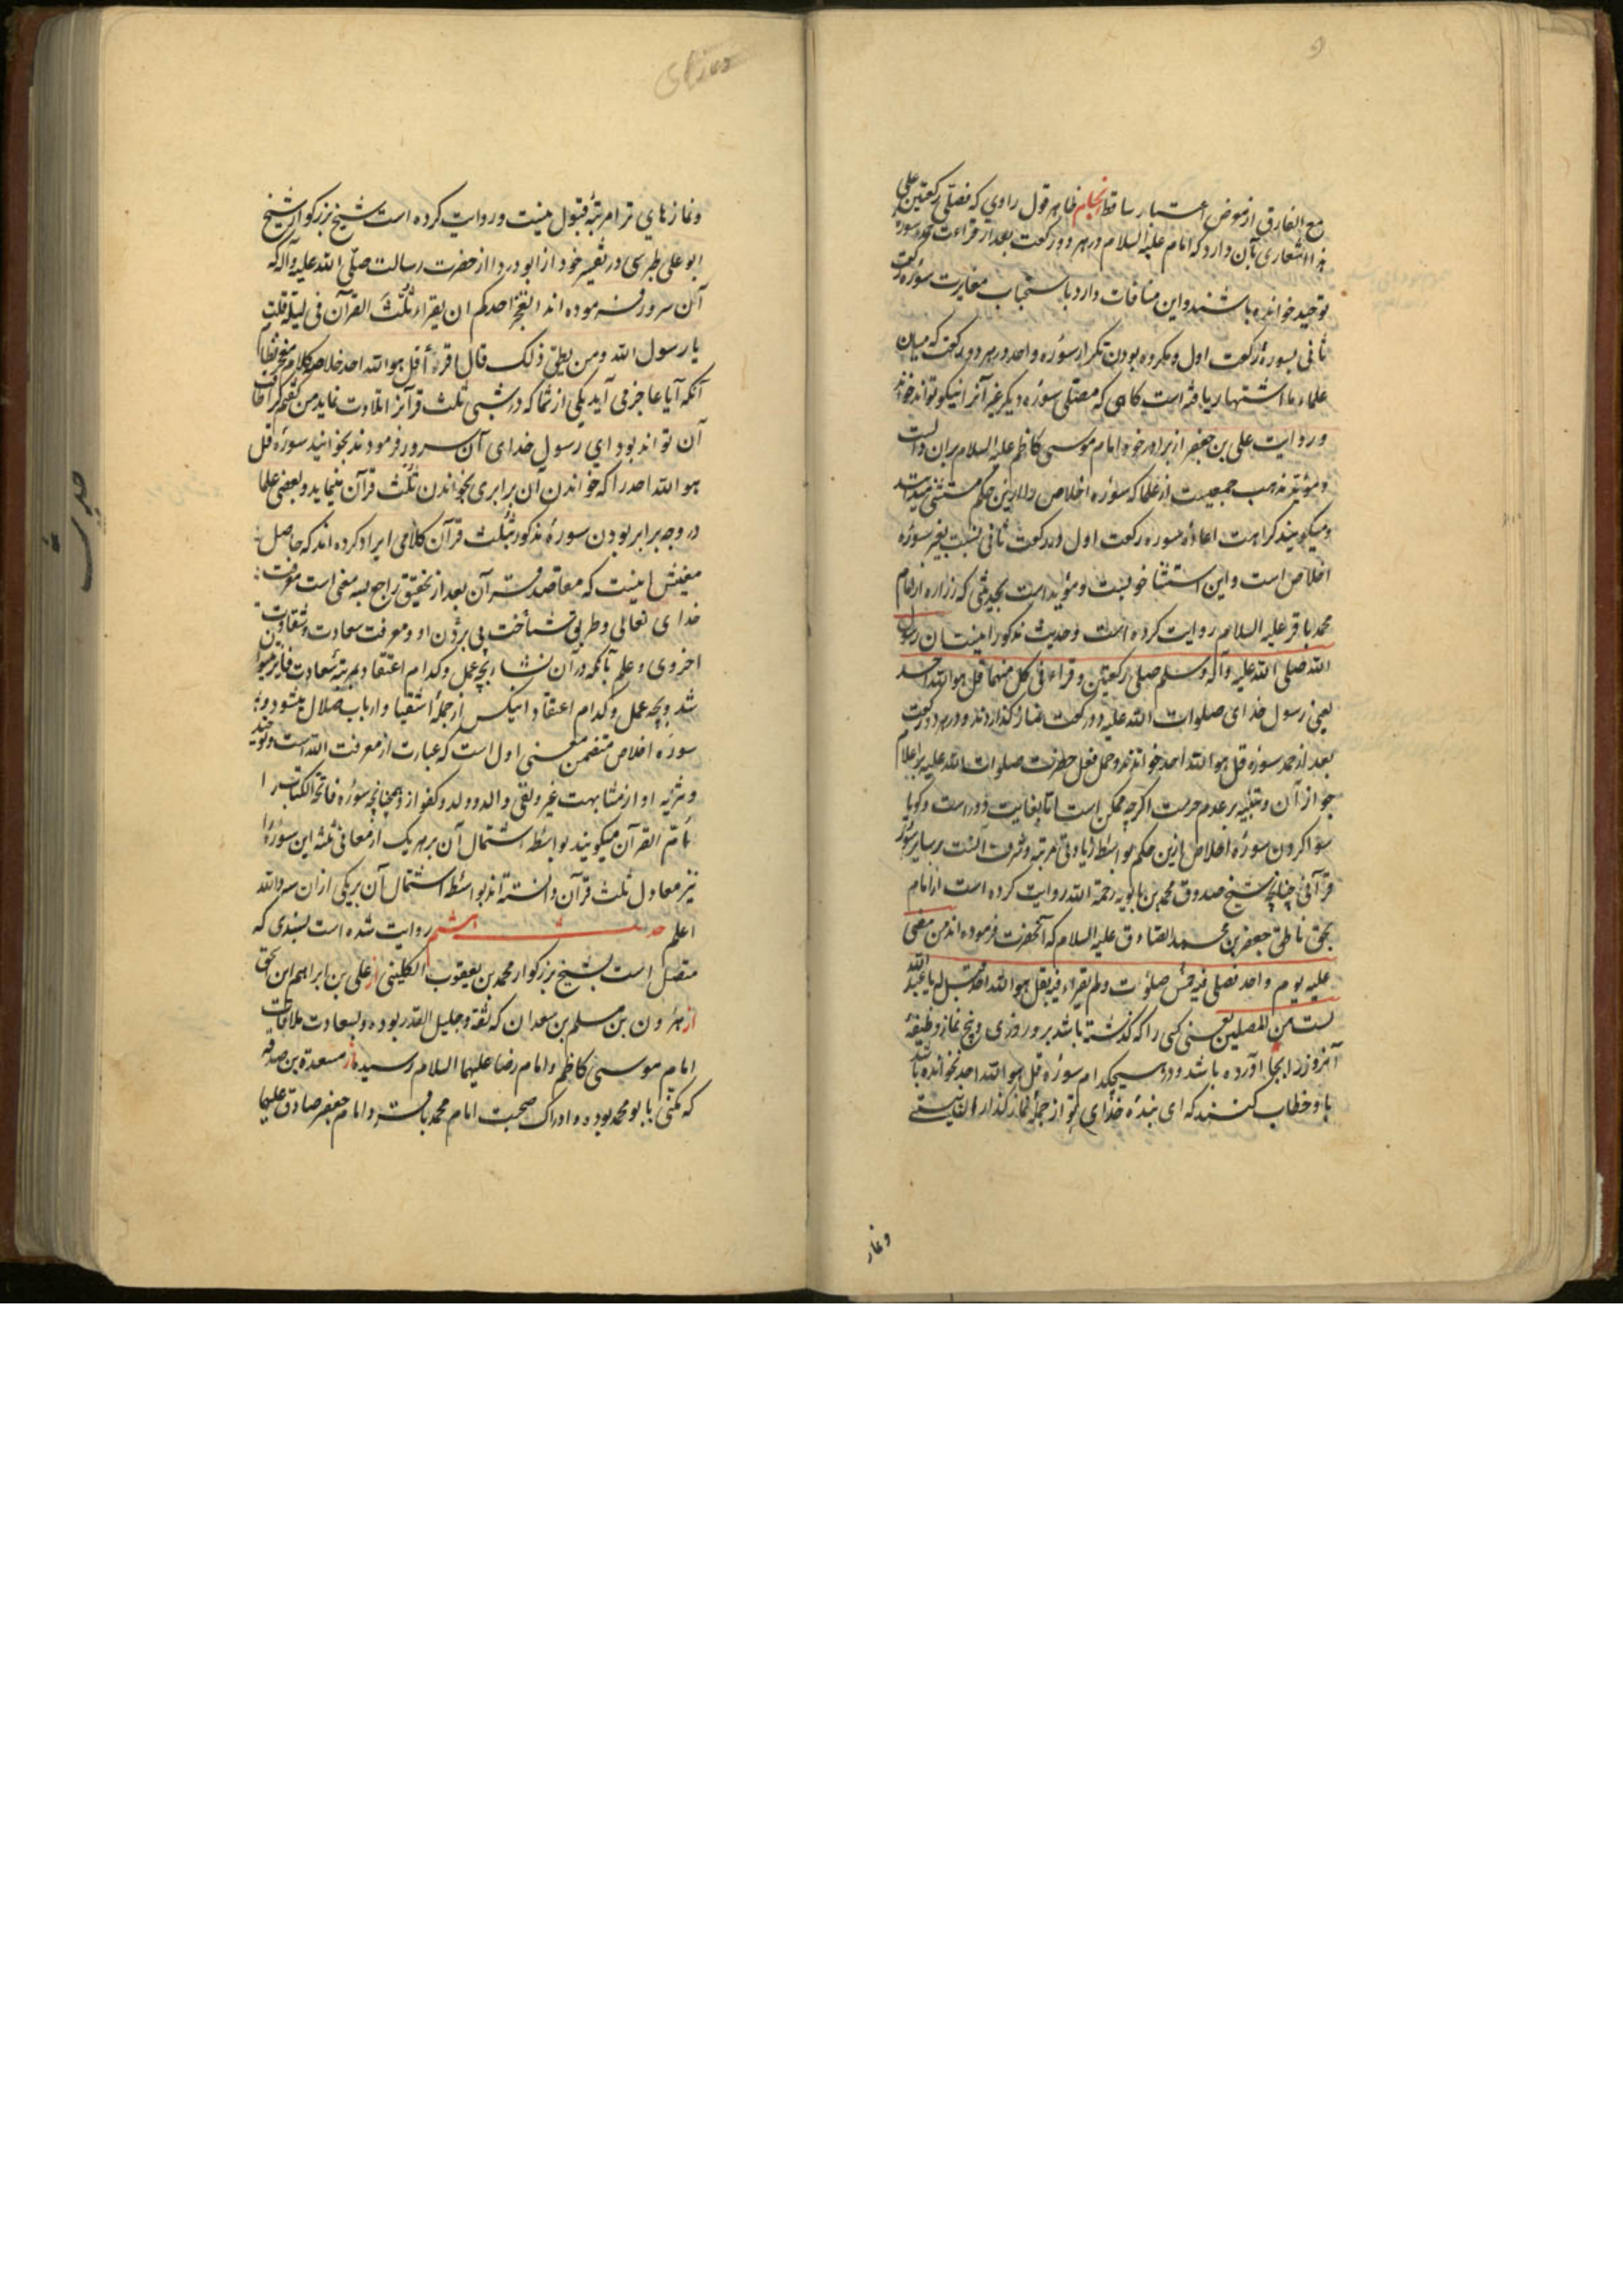 مع الفارق از معرض اعتبار ساقط انجام ظاهر قول راوی که فصلی رکعتین علی
هذا اشعاری بآن دارد که امام علیه السلام در هر دو رکعت بعد از قراءت حمد سوره
توحید خوانده باشند و این منافات دارد با استحباب مغایرت سوره رکعت
ثانی بسورهٔ رکعت اول و مکروه بودن تکرار سوره واحد در هر دو رکعت که میان
علماء ما اشتهار یافته است کاهی که مصلی سوره دیکر غیر آنرا نیکو تواند خواند
و روایت علی بن جعفر از برادر خود امام موسی کاظم علیه السلام بر آن دالست
و مؤید مذهب جمعیست از علما که سوره اخلاص را ازین حکم مستثنی میدانند
و میکویند کراهت اعاده سوره رکعت اول در رکعت ثانی نسبت بغیر سوره
اخلاص است و این استثنا خوبست و مؤید است بحدیثی که زراره از امام
محمد باقر علیه السلام روایت کرده است و حدیث مذکور اینست ان رسول
الله صلی الله علیه وآله وسلم صلی رکعتین و قراء فی کل منهما قل هو الله احد
یعنی رسول خدای صلوات الله علیه دو رکعت نماز کذاردند و در هر دو رکعت
بعد از حمد سوره قل هو الله احد خواندند و حمل فعل حضرت صلوات الله علیه بر اعلام
جواز آن و تنبیه بر عدم حرمت اکرچه ممکن است اما بغایت دور است و کویا
سوا کردن سورهٔ اخلاص ازین حکم بواسطه زیادتی مرتبه و شرف آنست بر سایر سور
قرآنی چنانچه شیخ صدوق محمد بن بابویه رحمة الله روایت کرده است از امام
بحق ناطق جعفر بن محمد الصادق علیه السلام که آنحضرت فرموده اند من مضی
علیه یوم واحد فصلی فیه خمس صلوات ولم یقراء فیه بقل هو الله احد قیل له یا عبد الله
لست من المصلین یعنی کسی را که کذشته باشد برو روزی و پنج نماز وظیفهٔ
آنروز را بجا آورده باشد و در هیچکدام سوره قل هو الله احد نخوانده باشد
باو خطاب کنند که ای بندهٔ خدای تو از جملهٔ نماز کذاران نیستی
و نماز
و نمازهای ترا مرتبهٔ قبول نیست و روایت کرده است شیخ بزرکوار شیخ
ابو علی طبرسی در تفسیر خود از ابو دردا از حضرت رسالت صلی الله علیه وآله که
آن سرور فرموده اند ایعجز احدکم ان یقراء ثلث القرآن فی لیلة قلت
یا رسول الله ومن یطیق ذلک قال اقرءُا قل هو الله احد خلاصه کلام معجز نظام
آنکه آیا عاجز می آید یکی از شما که در شبی ثلث قرآنرا تلاوت نماید من کفتم کرا طاقت
آن تواند بود ای رسول خدای آن سرور فرمودند بخوانید سورهٔ قل
هو الله احد را که خواندن آن برابری بخواندن ثلث قرآن مینماید و بعضی علما
در وجه برابر بودن سورهٔ مذکور بثلث قرآن کلامی ایراد کرده اند که حاصل
معنیش اینست که مقاصد قرآن بعد از تحقیق راجع بسه معنی است معرفت
خدای تعالی و طریق شناخت پی بردن او و معرفت سعادت و شقاوت
اخروی و علم بآنکه در آن نشاء بچه عمل و کدام اعتقاد بمرتبه سعادت فایز میتوان
شد و بچه عمل و کدام اعتقاد اینکس از جملهٔ اشقیا و ارباب ضلال میشود و
سوره اخلاص متضمن معنی اول است که عبارت از معرفت الله است و توحید
و تنزیه او از مشابهت غیر و نفی والد و ولد و کفو ازو و همچنانچه سوره فاتحة الکتاب را
ام القرآن میکویند بواسطه اشتمال آن بر هر یک از معانی ثلثه این سوره را
نیز معادل ثلث قرآن دانسته اند بواسطه اشتمال آن بر یکی از آن سه والله
اعلم حدیث ششم روایت شده است بسندی که
متصل است بشیخ بزرکوار محمد بن یعقوب الکلینی از علی بن ابراهیم ابن
از هرون بن مسلم بن سعدان که ثقه و جلیل القدر بوده و بسعادت ملاقات
امام موسی کاظم و امام رضا علیهما السلام رسیده از مسعدة بن صدقه
که مکنی بابو محمد بوده و ادراک صحبت امام محمد باقر و امام جعفر صادق علیهما